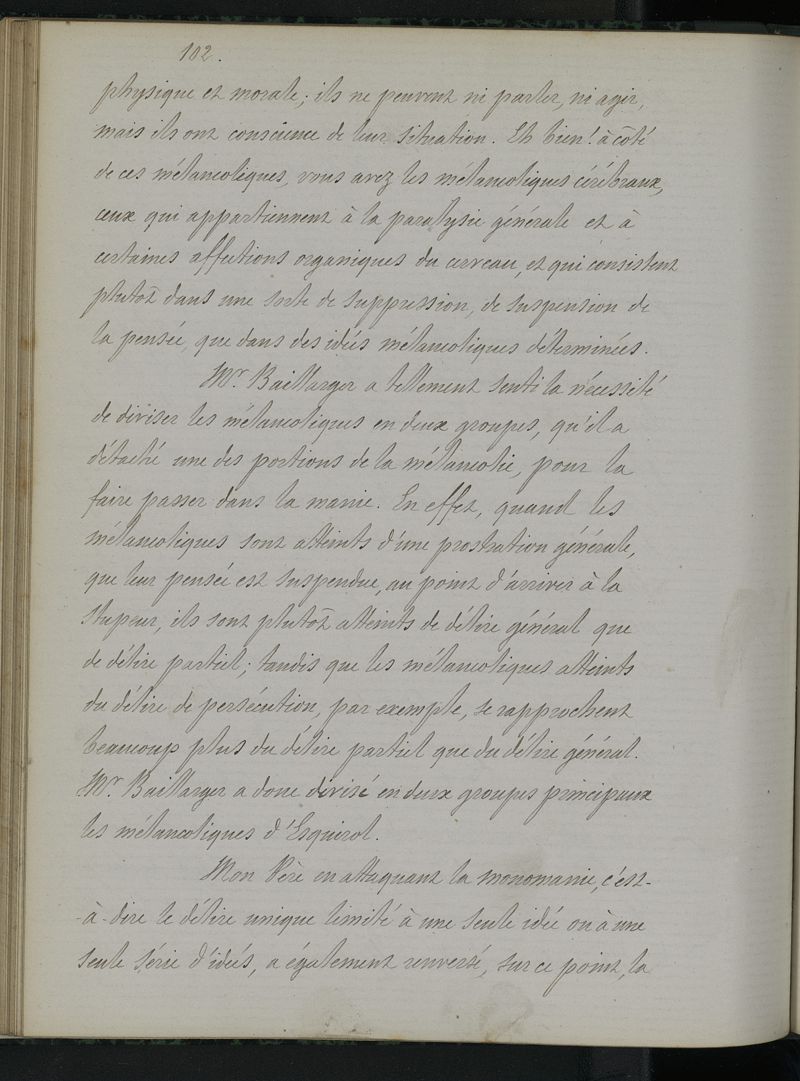 102.
physique et morale; ils ne peuvent ni parler, ni agir,
mais ils ont conscience de leur situation. Eh bien! à côté
de ces mélancoliques, vous avez les mélancoliques cérébraux,
ceux qui appartiennent à la paralysie générale et à
certaines affections organiques du cerveau, et qui consistent
plutôt dans une sorte de suppression, de suspension de
la pensée, que dans des idées mélancoliques déterminées.
Mr. Baillarger a tellement senti la nécessité
de diviser les mélancoliques en deux groupes, qu'il a
détaché une des portions de la mélancolie, pour la
faire passer dans la manie. En effet, quand les
mélancoliques sont atteints d'une prostration générale,
que leur pensée est suspendue, au point d'arriver à la
stupeur, ils sont plutôt atteints de délire général que
de délire partiel; tandis que les mélancoliques atteints
du délire de persécution, par exemple, se rapprochent
beaucoup plus du délire partiel que du délire général.
Mr. Baillarger a donc divisé en deux groupes principaux
les mélancoliques d'Esquirol.
Mon Père en attaquant la monomanie, c'est-
-à-dire le délire unique limité à une seule idée ou à une
seule série d'idées, a également renversé, sur ce point, la